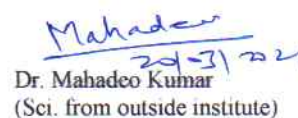 Mahadeo
20/03/202
Dr. Mahadeo Kumar
(Sci. from outside institute)